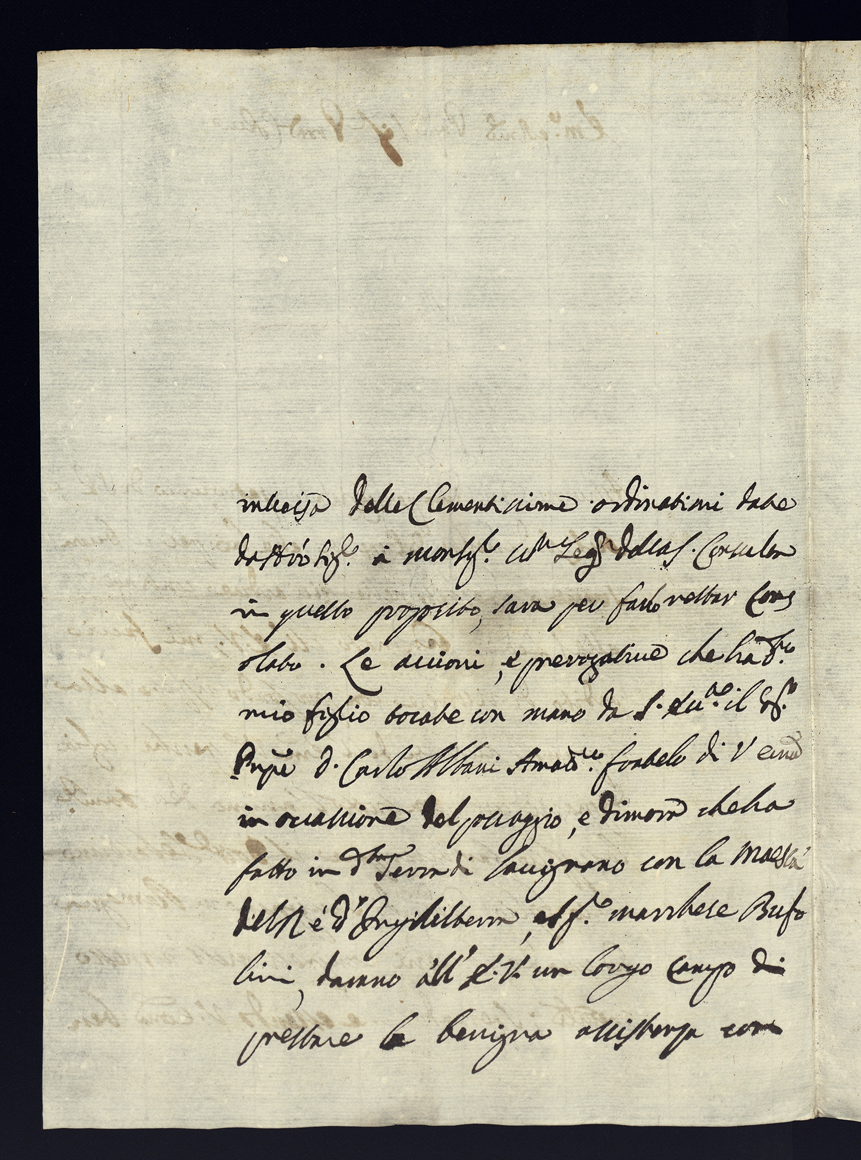 delle Clementissime ordinationi date
à monsig.re della S. Consulta
in questo proposito, sarà per farlo restar cons
olato. Le azioni, e prerogative che ha d.to
mio figlio toccate con mano da S. il
Pnpe D. Carlo Albani Amatiss.o fratelo di V
in occasione del passaggio, e dimora che ha
fatto in d.ta Terra di Savignano con la Maestà
del Rè d'Inghilterra, marchese Bufa
lini, darano all' E.V. un largo campo di
prestare la benigna assistenza con